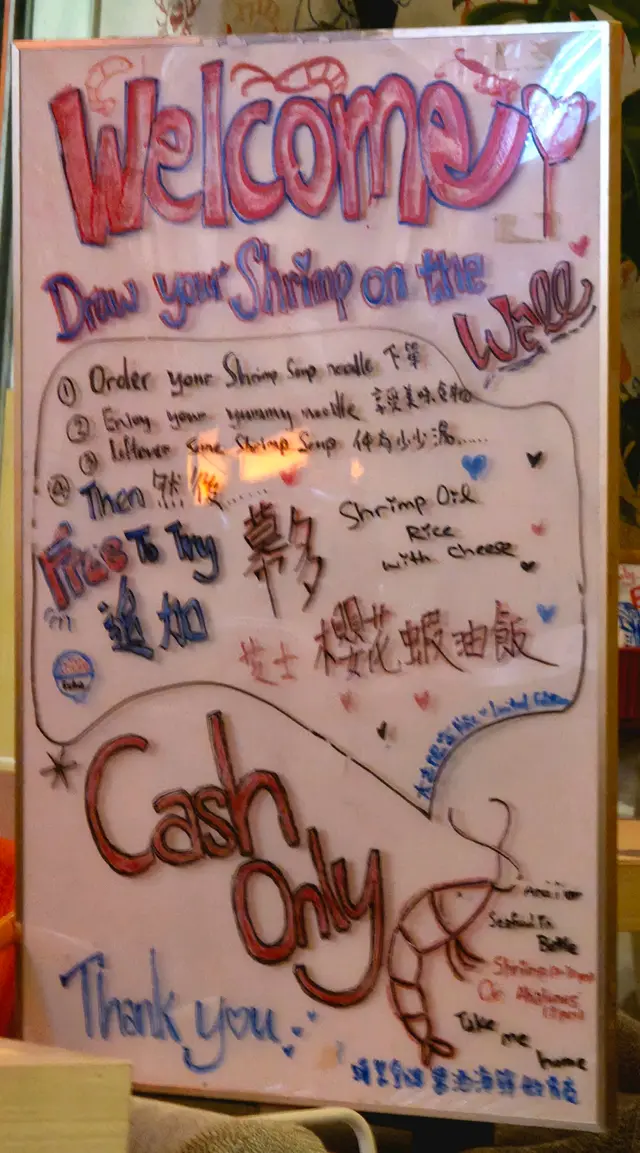 Welcome
Draw your Shrimp on the
Wall
① Order your Shrimp Soup noodle 下單
② Enjoy your yummy noodle 享受美味食物
③ leftover some Shrimp Soup 仲有少少湯......
④ Then 然後......
Free To Try
追加
Shrimp Oil
Rice
with cheese
芝士 櫻花蝦油飯
Limited Edition
* Cash
Only
Thank you
Seafood In
Bottle
Shrimp
Or Abalones
Take me
home